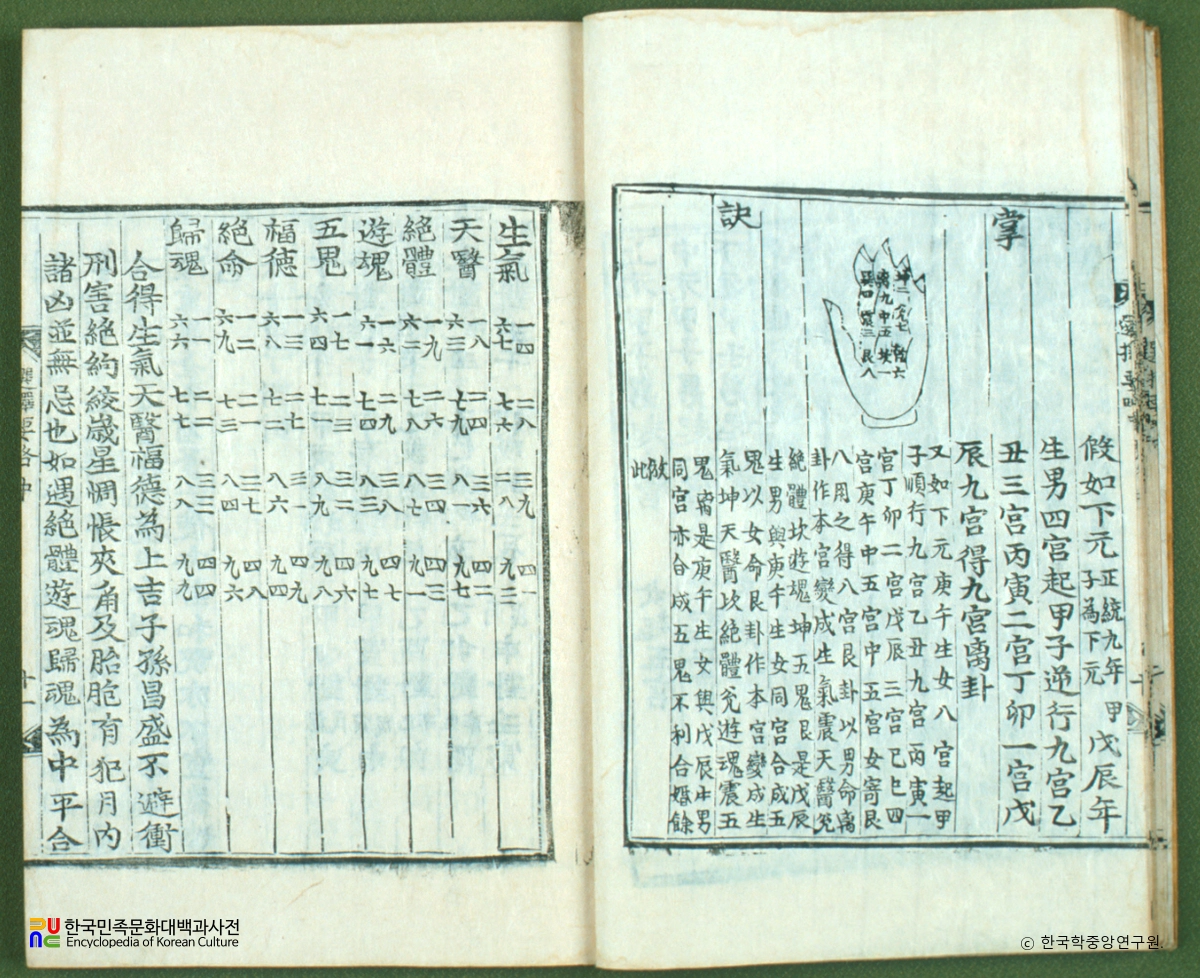 掌
訣
坤二 兌七 乾六
离九 中五 坎一
巽四 震三 艮八
假如下元正統九年甲子為下元戊辰年
生男四宮起甲子逆行九宮乙
丑三宮丙寅二宮丁卯一宮戊
辰九宮得九宮离卦
又如下元庚午生女八宮起甲
子順行九宮乙丑九宮丙寅一
宮丁卯二宮戊辰三宮已巳四
宮庚午中五宮中五宮女寄艮
八用之得八宮艮卦以男命离
卦作本宮變成生氣震天醫兌
絶體坎遊魂坤五鬼艮是戊辰
生男與庚午生女同宮合成五
鬼以女命艮卦作本宮變成生
氣坤天醫坎絶體兌遊魂震五
鬼离是庚午生女與戊辰生男
同宮亦合成五鬼不利合婚餘
倣此
生氣 一四 六七 二八 七六 三九 八二 四一 九三
天醫 一八 六三 二四 七九 三六 八一 四二 九七
絶體 一九 六二 二六 七八 三四 八七 四三 九一
遊魂 一六 六一 二九 七四 三八 八三 四七
五鬼 一七 六四 二三 七一 三二 八九 四六 九八
福德 一三 六八 二七 七二 三一 八六 四九 九四
絶命 一二 六九 二一 七三 三七 八四 四八 九六
歸魂 一一 六六 二二 七七 三三 八八 四四 九九
合得生氣天醫福德為上吉子孫昌盛不避衝
刑害絶約絞歲星惆悵夾角及胎胞有犯月内
諸凶並無忌也如遇絶體遊魂歸魂為中平合
한국민족문화대백과사전
Encyclopedia of Korean Culture
© 한국학중앙연구원.